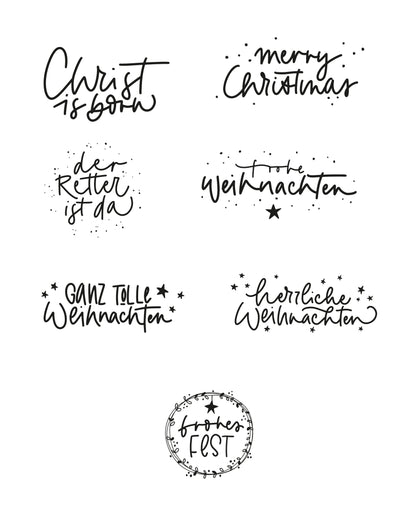 Christ
is born
merry
Christmas
der
Retter
ist da
frohe
Weihnachten
GANZ TOLLE
Weihnachten
herrliche
Weihnachten
frohes
FEST